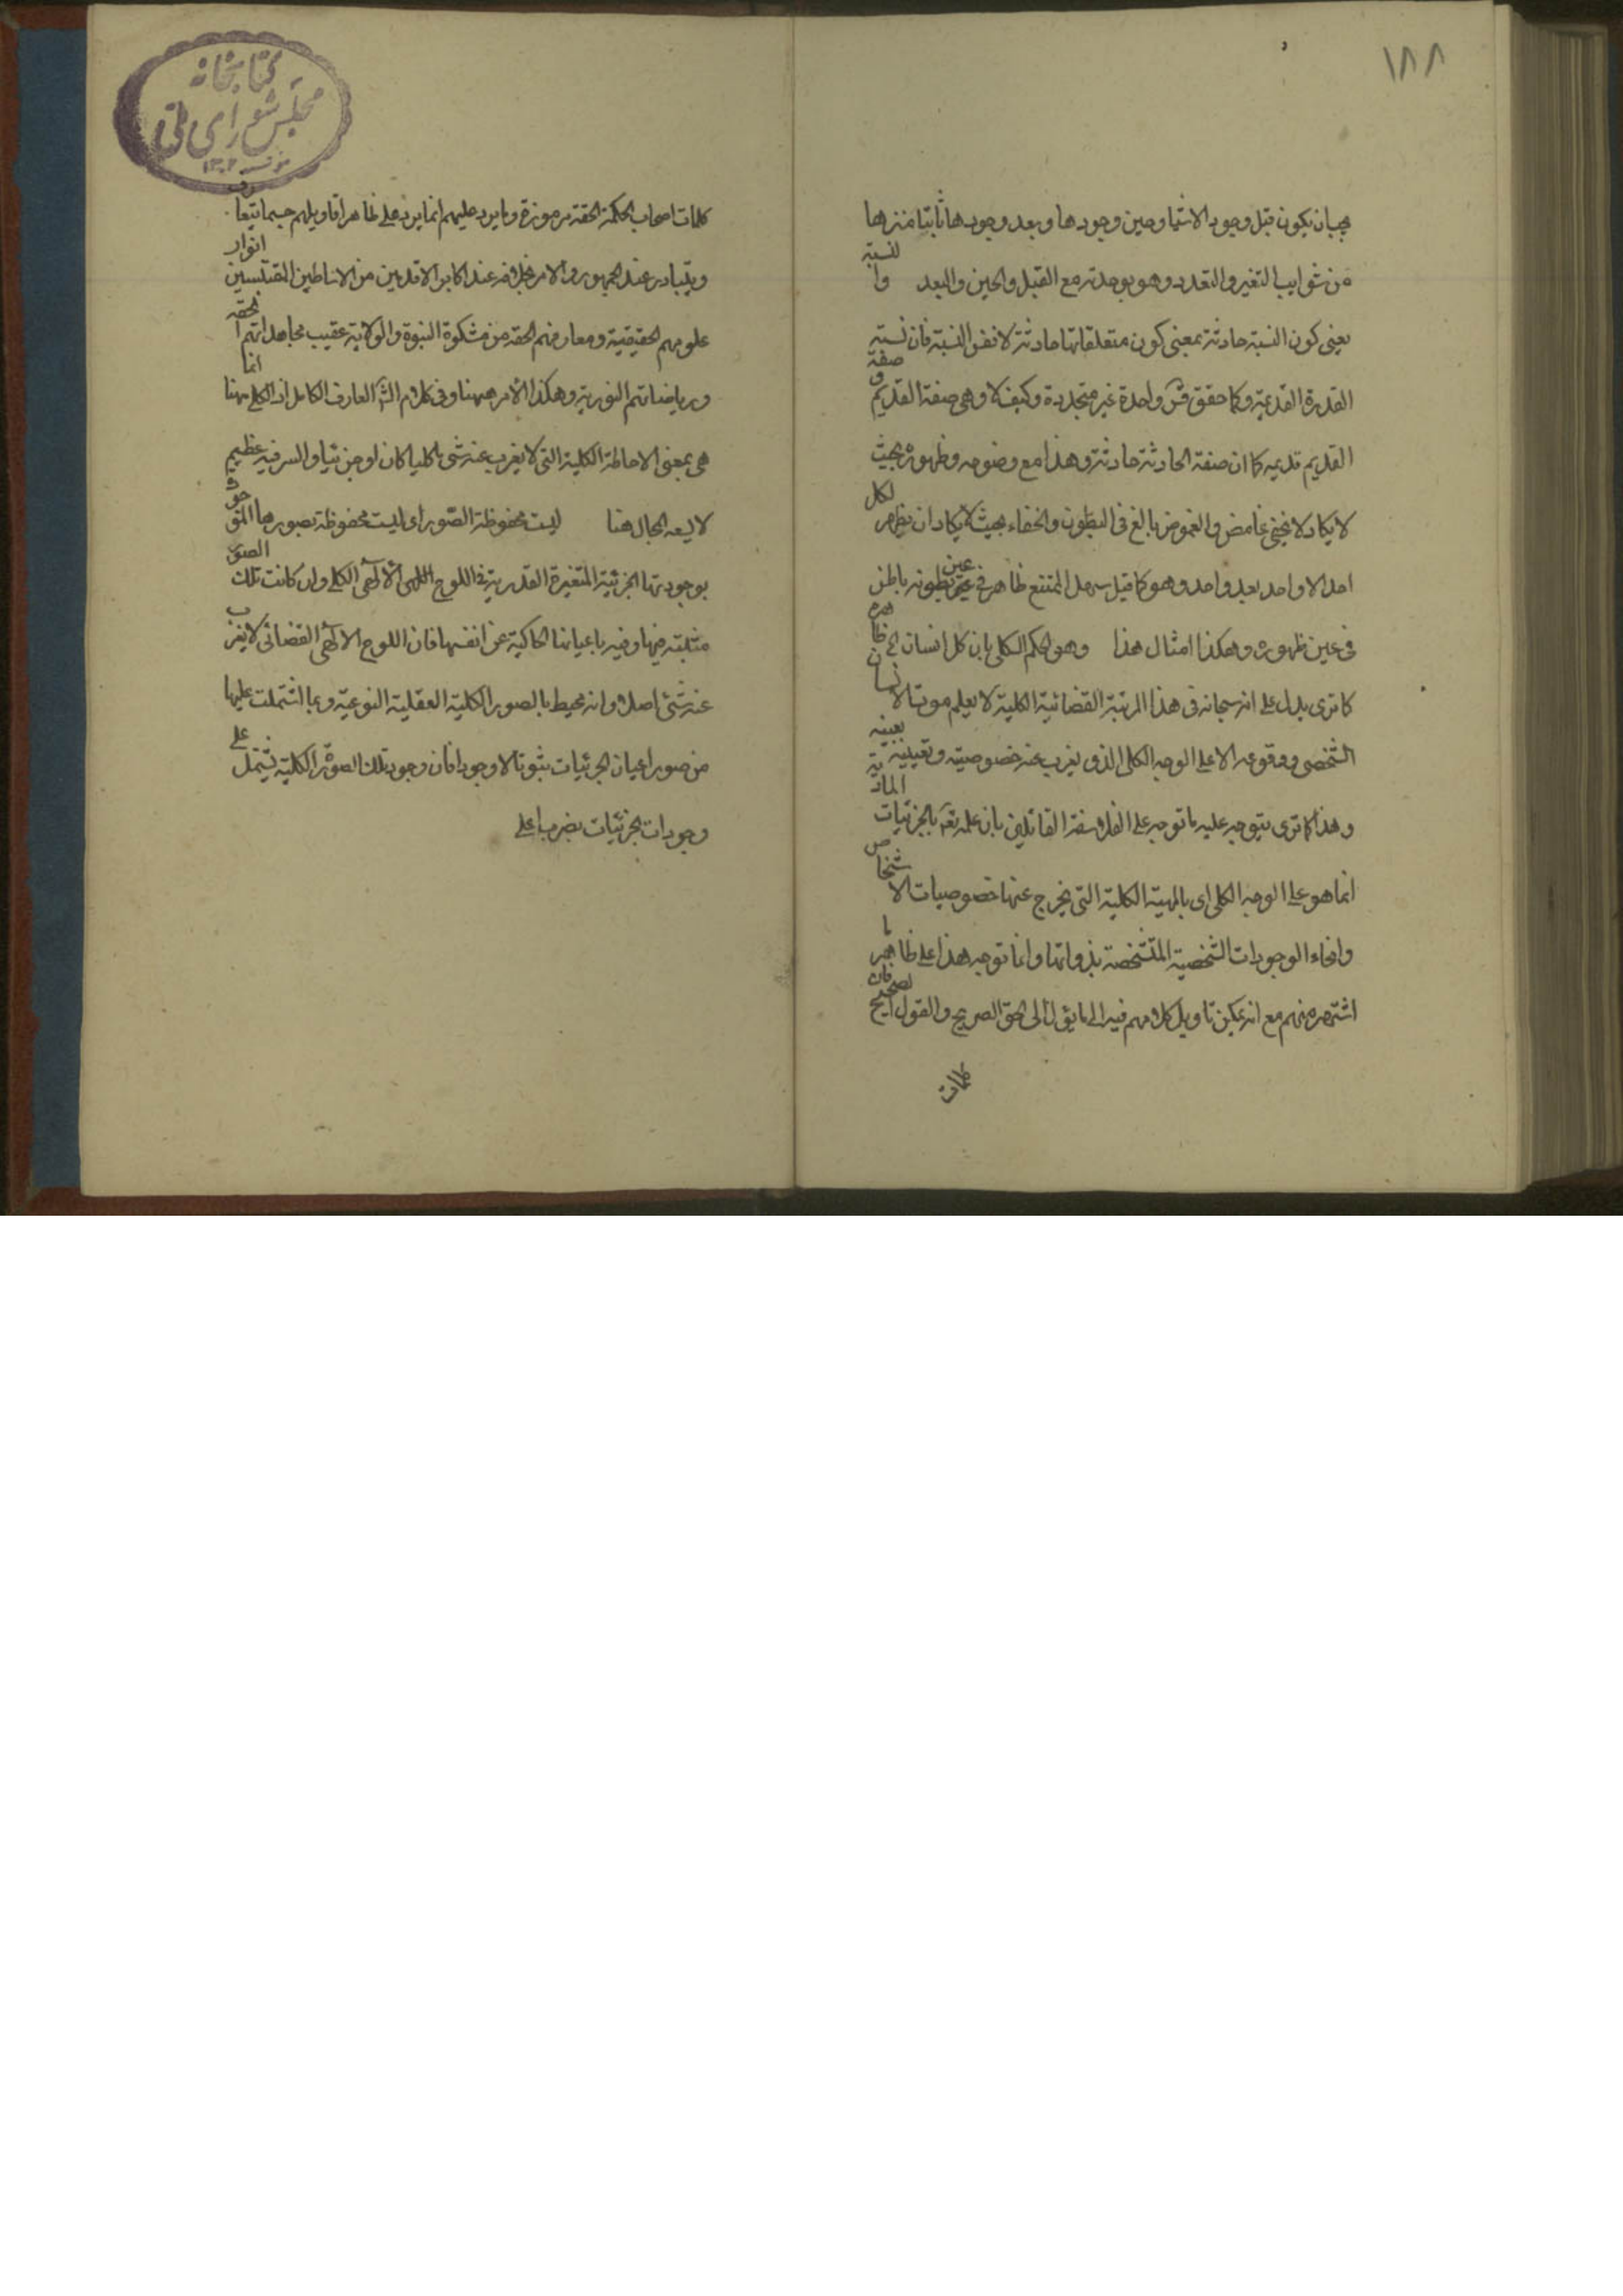 ١٨٨
يجب ان يكون قبل وجود الاشيا وحين وجودها وبعد وجودها ثابتا منزها
من شوايب التغير والتعدد وهو بوحدته مع القبل والحين والبعد والنسبة
يعنى كون النسبة حادثة بمعنى كون متعلقاتها حادثة لا نفس النسبة فان نسبة
القدرة القديمة وكما حقق واحدة غير متجددة وكيف لا وهى صفة القديم وصفة
القديم قديمه كما ان صفة الحادثة حادثة وهذا مع وضوحه وظهوره بحيث
لا يكاد لا يخفى غامض والغموض بالغ فى البطون والخفاء بحيث لا يكاد ان يظهر لكل
احد الا واحد بعد واحد وهو كما قيل سهل الممتنع ظاهر فى عين بطونه باطن
فى عين ظهوره وهكذا امثال هذا وهو الحكم الكلى بان كل انسان الخ ظاهره
كما ترى يدل على انه سبحانه فى هذا المرتبة القضائية الكلية لا يعلم موت الانسان
الشخصى ووقوعه الا على الوجه الكلى الذى يغرب عنه خصوصيته وتعيينه بعينه
وهذا كما ترى يتوجه عليه ما توجه على الفلاسفة القائلين بان علمه تعالى بالجزئيات المادية
انما هو على الوجه الكلى اى بالمهية الكلية التى يخرج عنها خصوصيات الاشخاص
وانحاء الوجودات الشخصية المتشخصة بذواتها وانما توجه هذا على ظاهر ما
اشتهر منهم مع انه يمكن تاويل كلامهم فيه الى ما يؤل الى الحق الصريح والقول الصحيح فان
كلمات
كتابخانه
مجلس شوراى ملى
١٣٠٢
كلمات اصحاب الحكمة الحقة مرموزة وما يرد عليهم انما يرد على ظاهر اقاويلهم حسبما يتعارف
ويتبادر عند الجمهور والامر بخلافه عند اكابر الاقدمين من الاساطين المقتبسين انوار
علومهم الحقيقية ومعارفهم الحقة من مشكوة النبوة والولاية عقيب مجاهداتهم الحقه
ورياضاتهم النورية وهكذا الأمر ههنا وفى كلام العارف الكامل اذ الكلى ههنا انما
هى بمعنى الاحاطة الكلية التى لا يغرب عنه شى كليا كان او جزئيا والسر فيه عظيم
لا يسعه المجال هنا ليست محفوظة الصور اى ليست محفوظة بصورها
بوجوديتها الجزئية المتغيرة القدرية فى اللوح الالهى الكلى وان كانت تلك الصور
مثبتة فيها وفيه باعيانها الحاكية عن انفسها فان اللوح الالهى القضائى لا يغرب
عنه شئ اصلا وانه محيط بالصور الكلية العقلية النوعية وبما اشتملت عليها
من صور اعيان الجزئيات ثبوتا لا وجودا فان وجود تلك الصور الكلية يشتمل على
وجودات الجزئيات بضرب اعلى